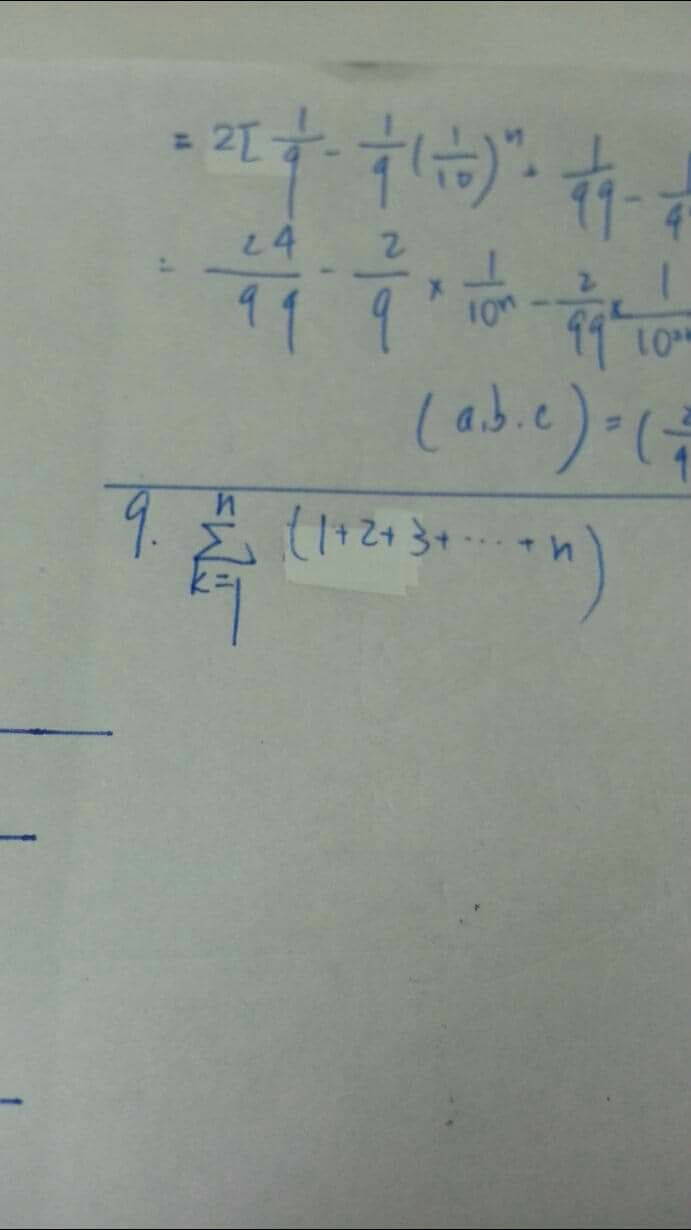 = 2[ 1/9 - 1/9 (1/10)^n + 1/99 -
= 24/99 - 2/9 × 1/10^n - 2/99 × 1/10
(a.b.c) = (
9. n Σ k=1 (1+2+3+⋯+n)